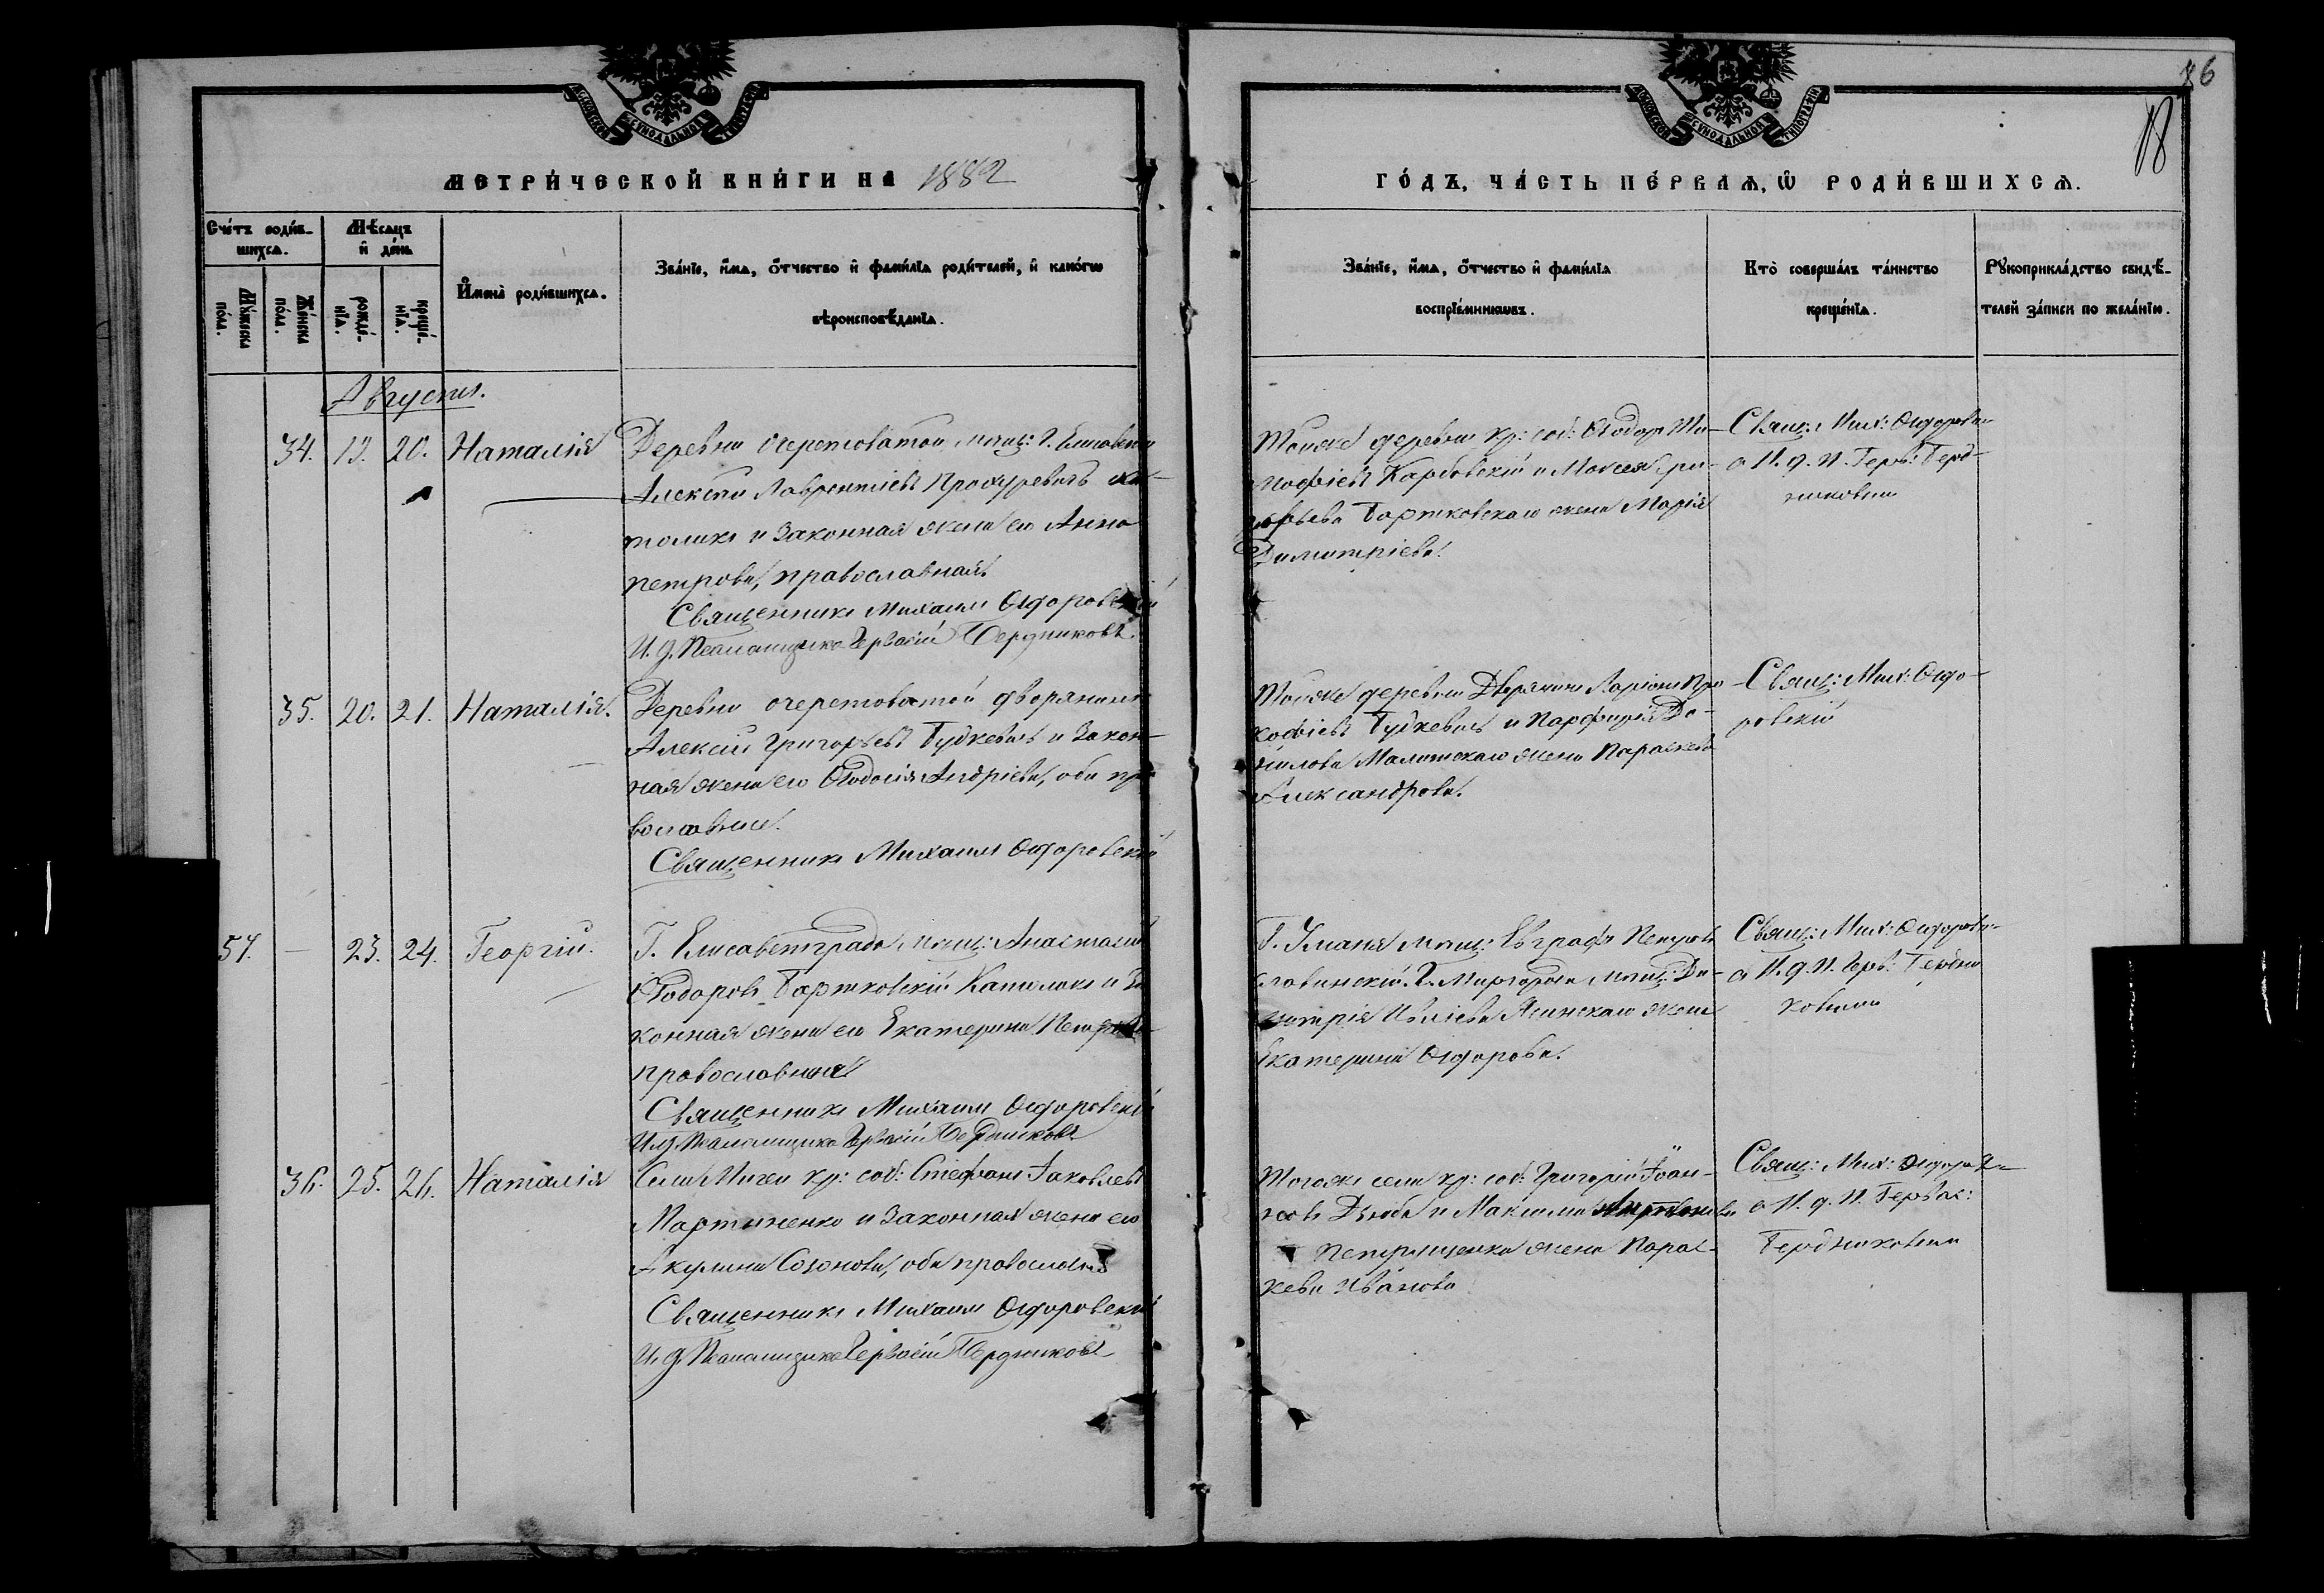 86
18
МЕТРИ́ЧЕСКОЙ КНИ́ГИ НА 1882
ГО́ДЪ, ЧА́СТЬ ПЕ́РВАѦ, Ѡ РОДИ́ВШИХСѦ.
Сче́тъ роди́в-
шихсѧ.
Мѣ́сѧцъ
и҆ де́нь
Мꙋ́жеска
по́ла.
Же́нска
по́ла.
рожде́-
нїѧ.
креще́-
нїѧ.
И҆мена̀ роди́вшихсѧ.
Зва́нїе, и҆́мѧ, ѻ҆́тчество и҆ фами́лїѧ роди́телей, и҆ како́гѡ
вѣроисповѣ́данїѧ.
Зва́нїе, и҆́мѧ, ѻ҆́тчество и҆ фами́лїѧ
воспрїе́мникѡвъ.
Кто̀ соверша́лъ та́инство
креще́нїѧ.
Рꙋкоприкла́дство свидѣ́-
телей за́писи по жела́нїю.
Августъ.
34. 19. 20. Наталія
Деревни Очеретоватой мѣщ: Г.
Алексѣй Лаврентіевъ Прохуревичъ ка-
толикъ и законная жена его Анна
Петрова, православная.
Священникъ Михаилъ Сидоровскій
И. д. Псаломщика Гервасій Бердниковъ.
Тойже деревни кр: соб: Ѳеодоръ Ти-
мофіевъ Карбовскій и Моисея Гри-
горьева Бартковскаго жена Марія
Димитріева.
Свящ: Мих: Сидоровскі
с И. д. П. Герв: Берд-
никовым
35. 20. 21. Наталія.
Деревни Очеретоватой дворянинъ
Алексій Григорьевъ Будкевичъ и закон-
ная жена его Ѳеодосія Андріева, оба пра
вославные.
Священникъ Михаилъ Сидоровскій
Тойже деревни Дворянинъ Ларіонъ Про
кофіевъ Будкевичъ и Парфирія Да-
нилова Малитскаго жена Параскева
Александрова.
Свящ: Мих: Сидо-
ровскій
57. — 23. 24. Георгій.
Г. Елисаветграда мѣщ: Анастасій
Ѳеодоровъ Бартковскій Католикъ и За
конная жена его Екатерина Петрова
православная
Священникъ Михаилъ Сидоровскій
И. д. Псаломщика Гервасій Бердниковъ
Г. Уманя мѣщ: Евграфъ Петровъ
Славинскій. Г. Миргорода мѣщ: Ди-
митрія Ивліева Ясинскаго жена
Екатерина Сидорова.
Свящ: Мих: Сидоровскі
с И. д. П. Герв: Бердни
ковым
36. 25. 26. Наталія
Села Мигеи кр: соб: Стефанъ Іаковлевъ
Мартыненко и законная жена его
Акулина Созонова, оба православные
Священникъ Михаилъ Сидоровскій
И. д. Псаломщика Гервасій Бердниковъ
Тогоже села кр: соб: Григорій Іоан-
новъ Дзюба и Максима
Петрищенка жена Парас-
кева Иванова
Свящ: Мих: Сидоровскі
с И. д. П. Гервас:
Бердниковым